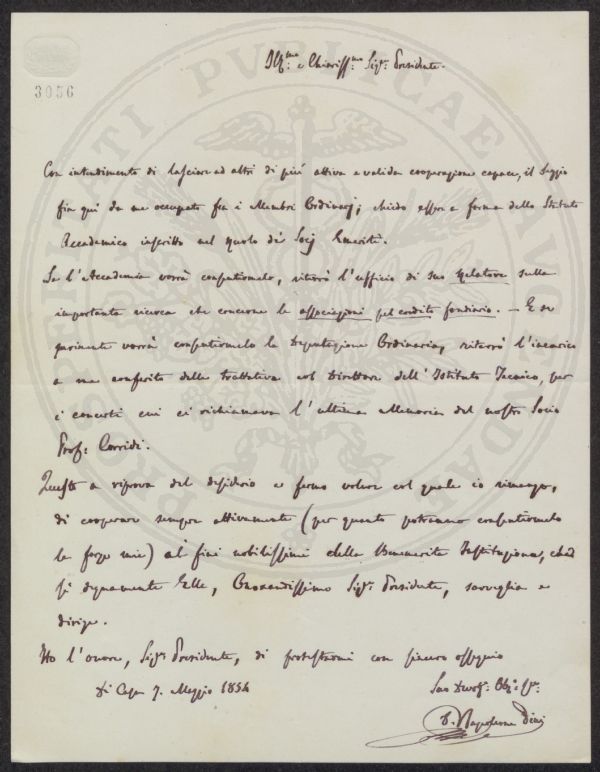 3056
Ill.mo e Chiariss.mo Sig.r Presidente.
Con intendimento di lasciare ad altri di più attiva e valida cooperazione capace, il Seggio
fin quì da me occupato fra i Membri Ordinarj; chiedo essere a forma dello Statuto
Accademico inscritto nel ruolo de' Socj Emeriti.
Se l'Accademia vorrà consentirmelo, riterrò l'ufficio di suo Relatore sulla
importante ricerca che concerne le associazioni pel credito fondiario. — E se
parimente vorrà consentirmelo la Deputazione Ordinaria, riterrò l'incarico
a me conferito delle trattative col Direttore dell'Istituto Tecnico, per
i concerti cui ci richiamava l'ultima Memoria del nostro Socio
Prof: Corridi.
Questo a riprova del desiderio e fermo volere col quale io rimango,
di cooperare sempre attivamente (per quanto potranno consentirmelo
le forze mie) ai fini nobilissimi della Benemerita Instituzione, che
sì degnamente Elle, Onorandissimo Sig.r Presidente, sorveglia e
dirige.
Ho l'onore, Sig.r Presidente, di protestarmi con sincero ossequio
Di Casa 7. Maggio 1854
Suo Devot: Obb:
D. Napoleone Pini
PROSPERITATI PVBLICAE AVGENDAE